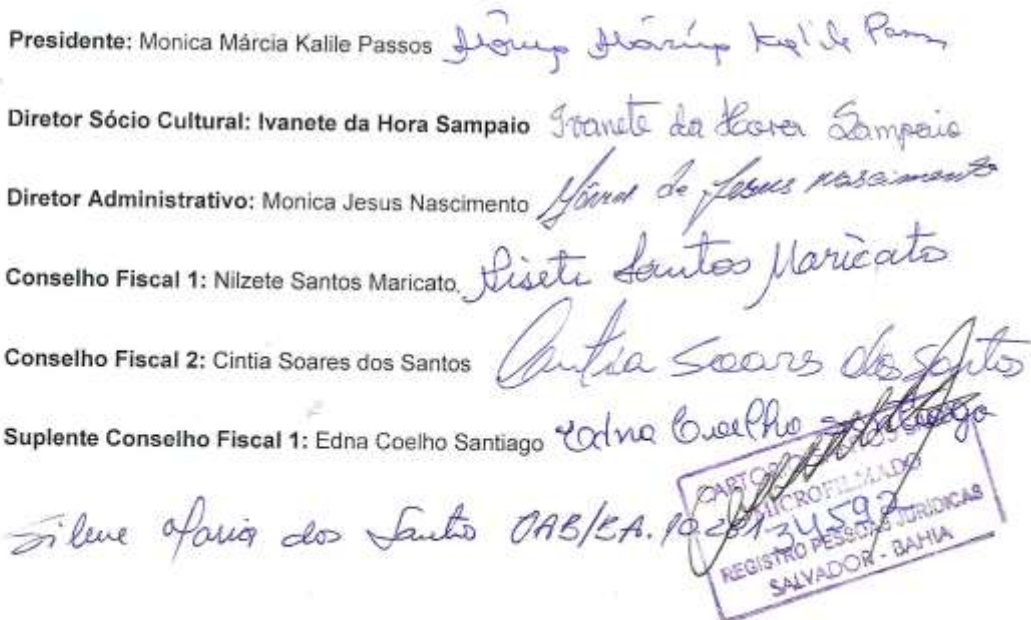 Presidente: Monica Márcia Kalile Passos Mônica Márcia Kalile Passos
Diretor Sócio Cultural: Ivanete da Hora Sampaio Ivanete da Hora Sampaio
Diretor Administrativo: Monica Jesus Nascimento Mônica de Jesus nascimento
Conselho Fiscal 1: Nilzete Santos Maricato. Santos Maricato
Conselho Fiscal 2: Cintia Soares dos Santos Cintia Soares dos Santos
Suplente Conselho Fiscal 1: Edna Coelho Santiago Edna Coelho Santiago
MICROFILMADO
Silene Maria dos Santos OAB/BA.
34592
REGISTRO PESSOAS JURIDICAS
SALVADOR - BAHIA